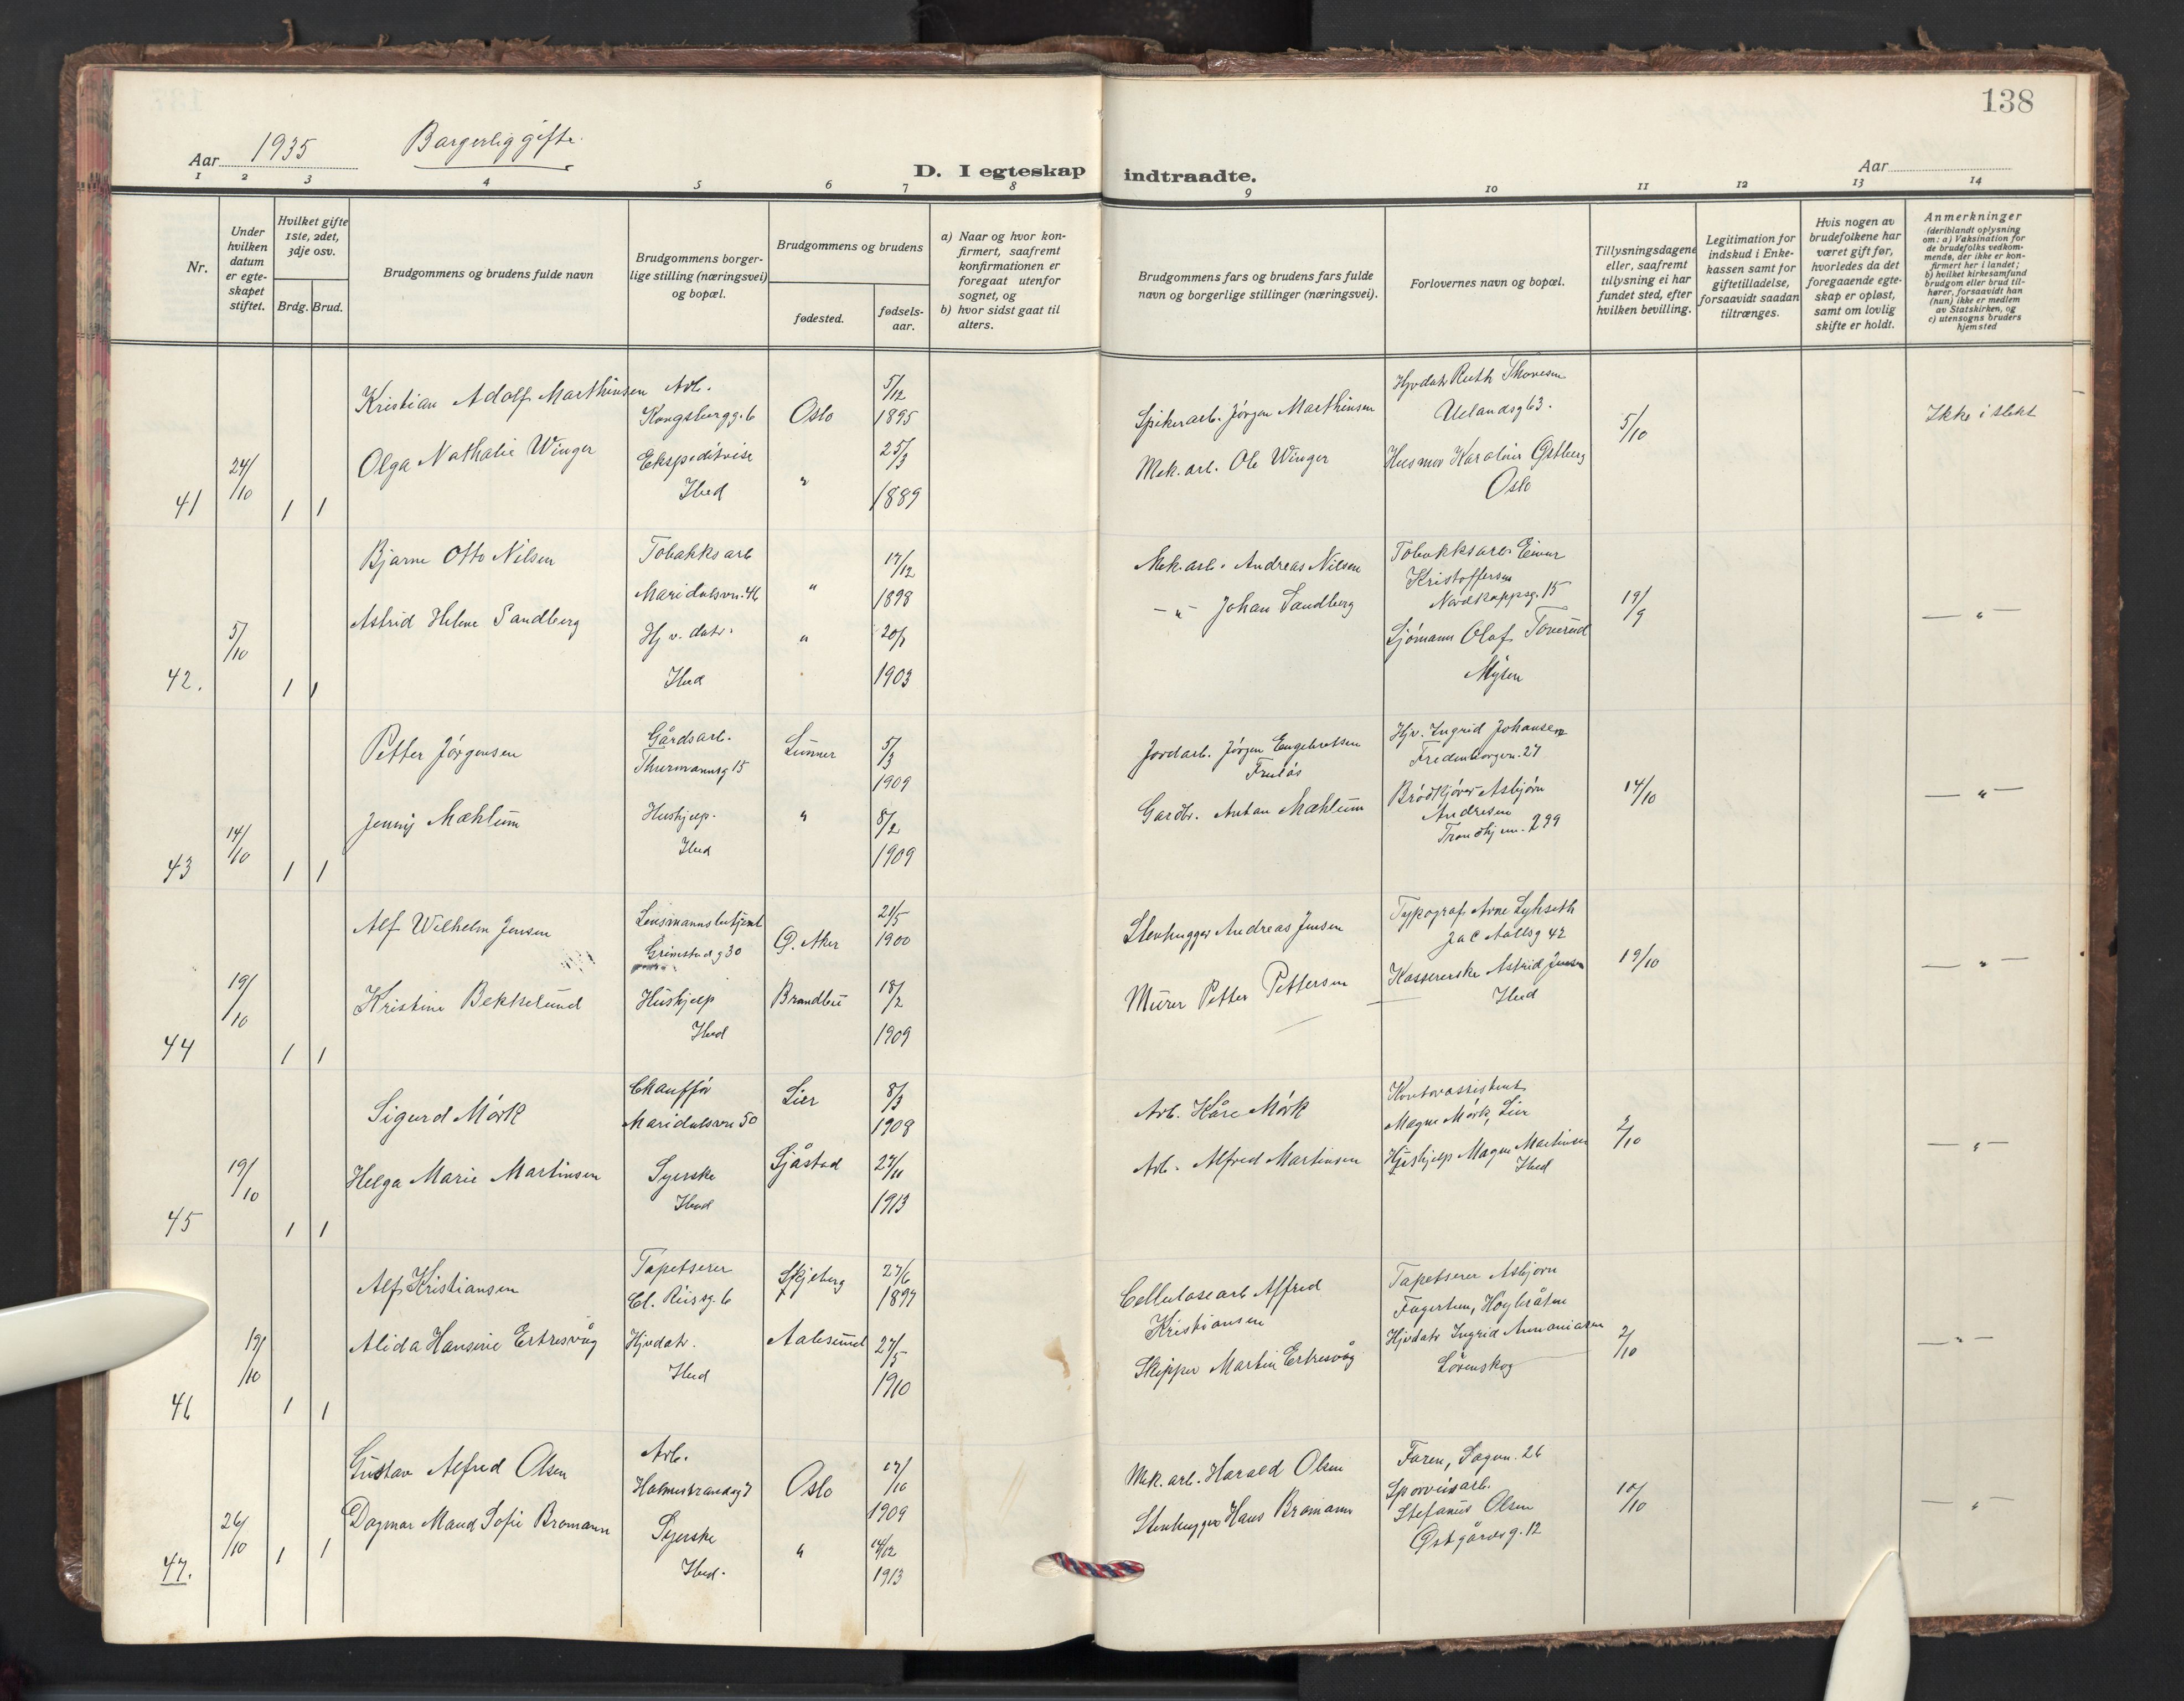 138
Aar 1935 Borgerlig gifte.
D. I egteskap indtraadte.
Aar
1 2 3 4 5 6 7 8 9 10 11 12 13 14
Nr.
Under hvilken datum er egteskapet stiftet.
Hvilket gifte 1ste, 2det, 3dje osv.
Brdg. Brud.
Brudgommens og brudens fulde navn
Brudgommens borgerlige stilling (næringsvei) og bopæl.
Brudgommens og brudens
fødested.
fødselsaar.
a) Naar og hvor konfirmert, saafremt konfirmationen er foregaat utenfor sognet, og
b) hvor sidst gaat til alters.
Brudgommens fars og brudens fars fulde navn og borgerlige stillinger (næringsvei).
Forlovernes navn og bopæl.
Tillysningsdagene eller, saafremt tillysning ei har fundet sted, efter hvilken bevilling.
Legitimation for indskud i Enkekassen samt for giftetilladelse, forsaavidt saadan tiltrænges.
Hvis nogen av brudefolkene har været gift før, hvorledes da det foregaaende egteskap er opløst, samt om lovlig skifte er holdt.
Anmerkninger (deriblandt oplysning om: a) Vaksination for de brudefolks vedkommende, der ikke er konfirmert her i landet; b) hvilket kirkesamfund brudgom eller brud tilhører, forsaavidt han (hun) ikke er medlem av Statskirken, og c) utensogns bruders hjemsted
41
24/10
1 1
Kristian Adolf Marthinsen
Arb.
Kongsbergg. 6
Oslo
5/12
1895
Olga Nathalie Winger
Ekspeditrise
Ibed
"
25/3
1889
Spikerarb. Jörgen Marthinsen
Mek. arb. Ole Winger
Hjvdatr Ruth Thoresen
Uelandsg 63.
Husmor Karoline Østberg
Oslo
5/10
Ikke i slekt
42.
5/10
1 1
Bjarne Otto Nilsen
Tobakksarb
Maridalsvn. 46
"
17/12
1898
Astrid Helene Sandberg
Hj v. datr.
Ibed
"
1903
Mek. arb. Andreas Nilsen
— " — Johan Sandberg
Tobakksarb. Einar
Kristoffersen
Nordkappg. 15
Sjömann Olaf Toverud
Mysen
19/9
— " —
43
14/10
1 1
Petter Jörgensen
Gårdsarb.
Thurmannsg 15
Lunner
5/3
1909
Jenny Mæhlum
Hushjelp.
Ibed
"
8/2
1909
Jordarb. Jörgen Engebretsen
Gardbr. Anton Mæhlum
Hjv. Ingrid Johansen
Fredensborgvn. 27
Brödkjörer Asbjörn
Andresen
Trondhj. vn. 299
14/10
— " —
44
19/10
1 1
Alf Wilhelm Jensen
Lensmannsbetjent
Grimstadg 30
Ø. Aker
21/5
1900
Kristine Bekkelund
Hushjelp
Ibed
Brandbu
18/2
1909
Stenhugger Andreas Jensen
Murer Petter Pettersen
Typograf Arne Lykseth
Jac Aallsg 42
Kassererske Astrid Jensen
Ibed
19/10
— " —
45
19/10
1 1
Sigurd Mörk
Chafför
Maridalsvn 50
Lier
8/3
1908
Helga Marie Martinsen
Syerske
Ibed
Sjåstad
27/11
1913
Arb. Kåre Mörk
Arb. Alfred Martinsen
Kontorassistent
Magne Mörk, Lier
Hushjelp Magna Martinsen
Ibed
2/10
— " —
46
19/10
1 1
Alf Kristiansen
Tapetserer
Cl. Riisg. 6
Skjeberg
27/6
1897
Alida Hansine Ertresvåg
Hjvdatr.
Ibed
Aalesund
27/5
1910
Cellulosearb Alfred
Kristiansen
Skipper Martin Ertresvåg
Tapetserer Asbjörn
Fagertun, Höybråten
Hjvdatr Ingrid Ananiasen
Lörenskog
2/10
— " —
47.
26/10
1 1
Gustav Alfred Olsen
Arb.
Holmestrandsg 7
Oslo
17/10
1909
Dagmar Maud Sofie Bromann
Syerske
Ibed.
"
14/12
1913
Mek. arb. Harald Olsen
Stenhugger Hans Bromann
Faren, Sagvn. 26
Sporveisarb.
Stefanus Olsen
Østgårdsg. 12
10/10
— " —